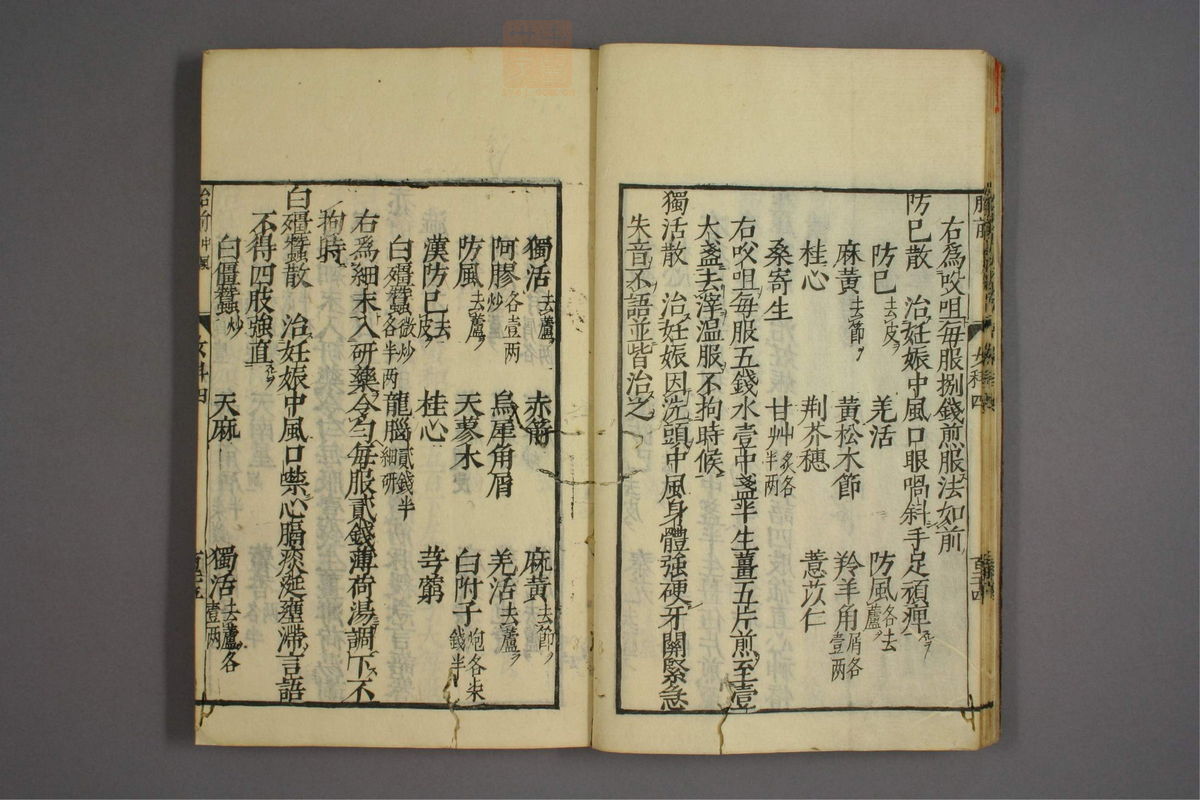 右爲㕮咀毎服捌錢煎服法如前
防已散　治妊娠中風口眼喎斜手足頑痺
防已去皮　羌活　防風各去蘆
麻黃去節　黃松木節　羚羊角屑各壹兩
桂心　荆芥穗　薏苡仁
桑寄生　甘艸炙各半兩
右㕮咀毎服五錢水壹中盞半生薑五片煎至壹
大盞去滓温服不拘時候
獨活散　治妊娠因洗頭中風身體強硬牙關緊急
失音不語並皆治之
獨活去蘆　赤箭　麻黃去節
阿膠炒各壹兩　烏犀角屑　羌活去蘆
防風去蘆　天蓼木　白附子炮各柒錢半
漢防已去皮　桂心　芎藭
白殭蠶微炒各半兩　龍腦貳錢半細研
右爲細末入研藥令勻毎服貳錢薄荷湯調下不
拘時
白殭蠶散　治妊娠中風口噤心膈痰涎壅滯言語
不得四肢強直
白僵蠶炒　天麻　獨活去蘆各壹兩
胎前
女科四
百三十四
胎前中風
女科四